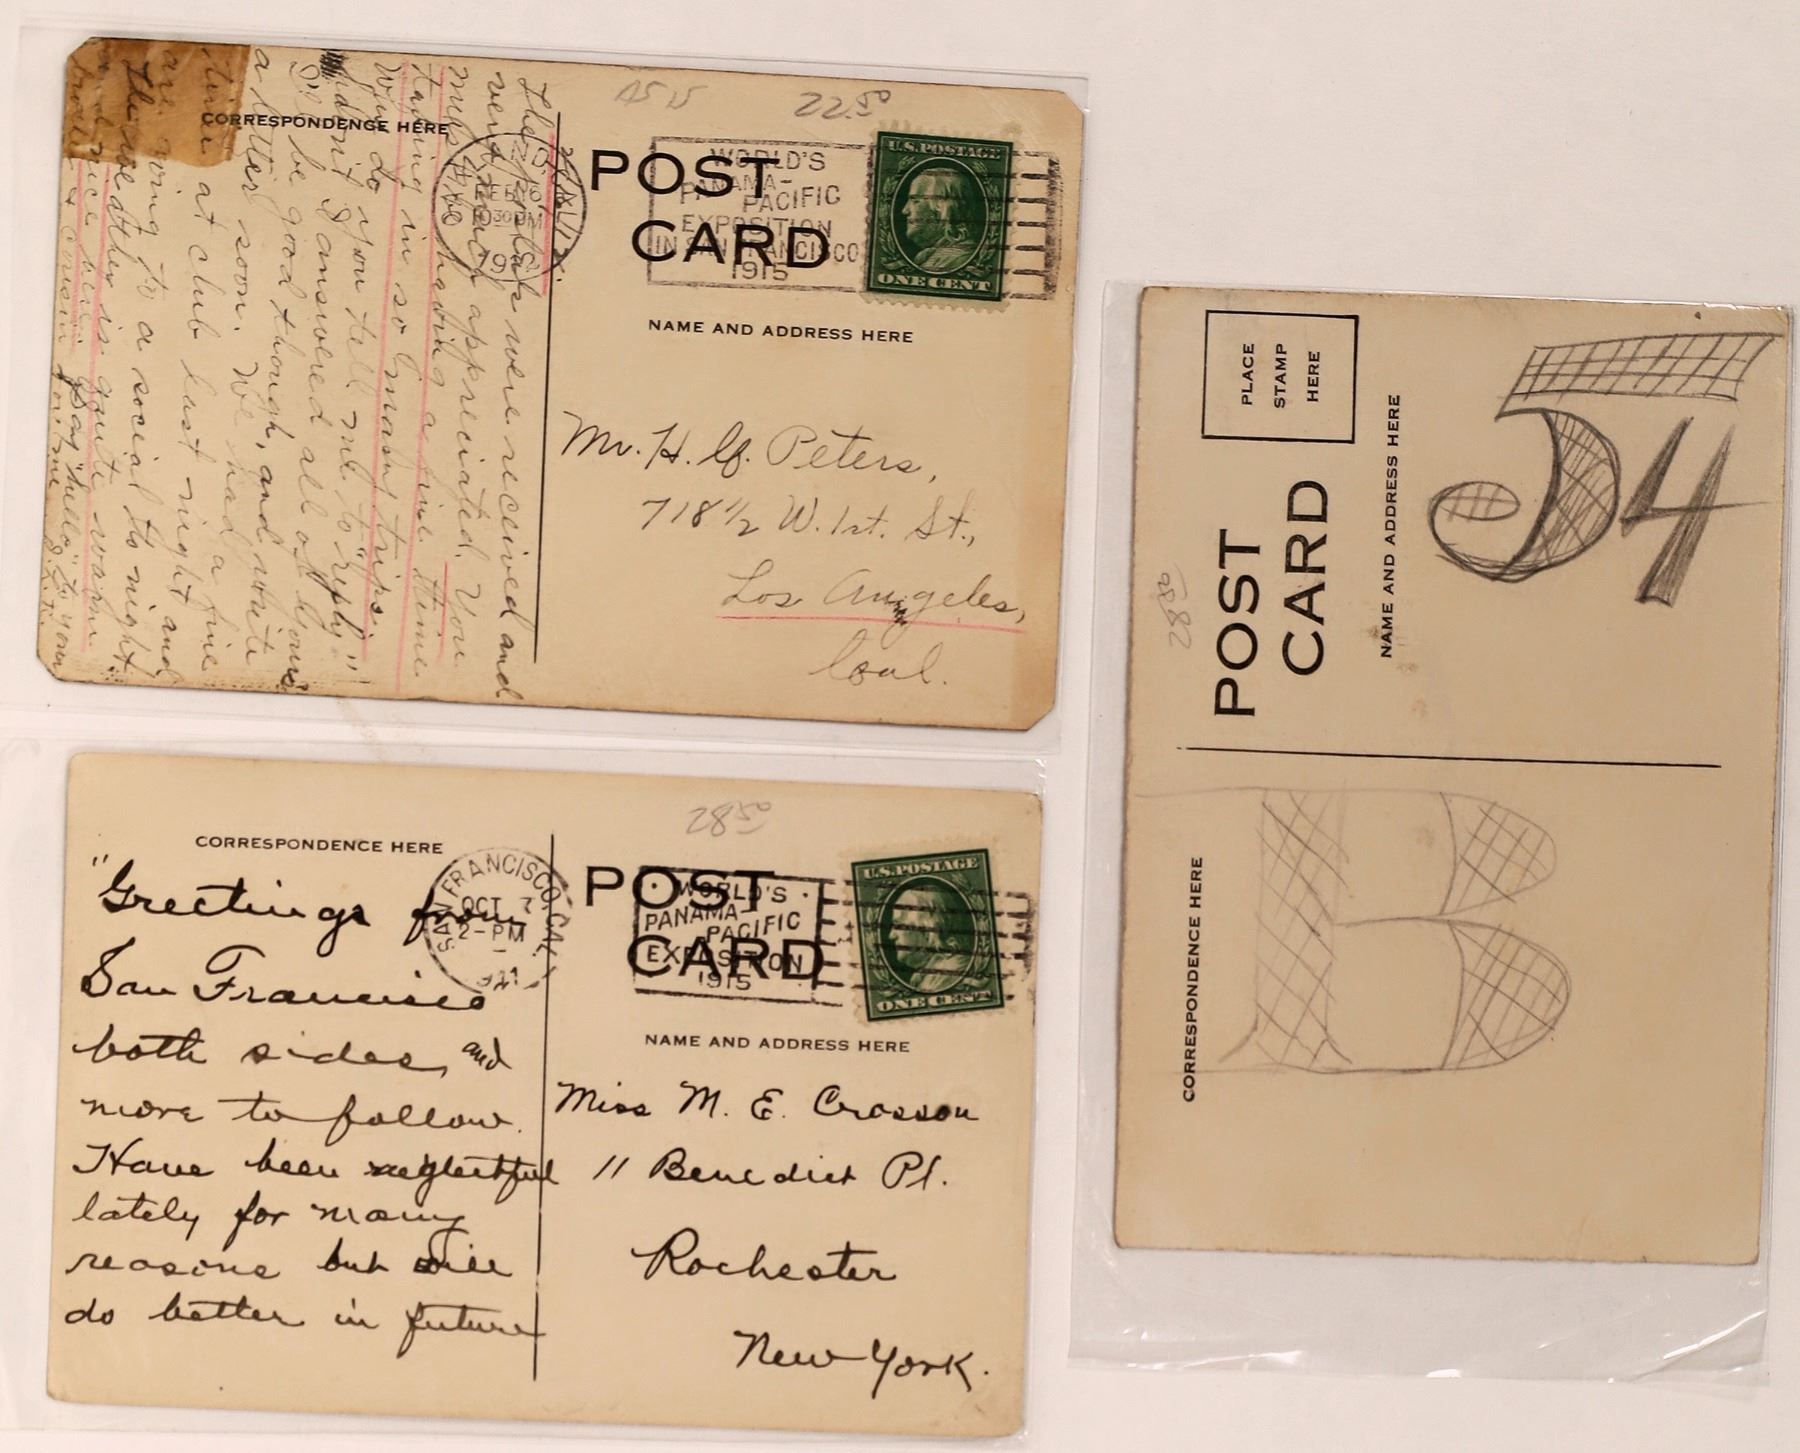 22.50
CORRESPONDENCE HERE
POST
CARD
WORLD'S
PANAMA-
PACIFIC
EXPOSITION
IN SAN FRANCISCO
1915
U.S. POSTAGE
ONE CENT
NAME AND ADDRESS HERE
Mr. H. G. Peters,
718 1/2 W. 1st. St.,
Los Angeles,
Cal.
The postals were received and
very much appreciated. You
must be having a fine time
taking in so many trips.
Why do you tell me to "reply"
I answered all of yours
I'll be good though, and write
a letter soon. We had a fine
time at club last night and
are going to a social to-night.
The weather is quite warm
and nice
Say "hello" to your
cousin for me
28.50
CORRESPONDENCE HERE
POST
CARD
SAN FRANCISCO, CAL.
OCT 7
2-PM
1911
WORLD'S
PANAMA-
PACIFIC
EXPOSITION
1915
U.S. POSTAGE
ONE CENT
NAME AND ADDRESS HERE
"Greetings from
San Francisco
both sides, and
more to follow.
Have been neglectful
lately for many
reasons but will
do better in future
Miss M. E. Crosson
11 Benedict Pl.
Rochester
New York.
PLACE
STAMP
HERE
POST
CARD
NAME AND ADDRESS HERE
CORRESPONDENCE HERE
54